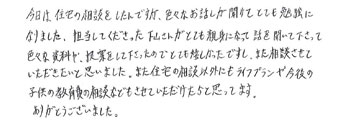 今日は住宅の相談をしたんですが、色々なお話しが聞けてとても勉強に
なりました。担当してくださった下山さんがとても親身になって話を聞いて下さって
色々な資料や、提案をして下さったのでとても嬉しかったですし、また相談させて
いただきたいと思いました。また住宅の相談以外にもライフプランや今後の
子供の教育費の相談などもさせていただけたらと思ってます。
ありがとうございました。